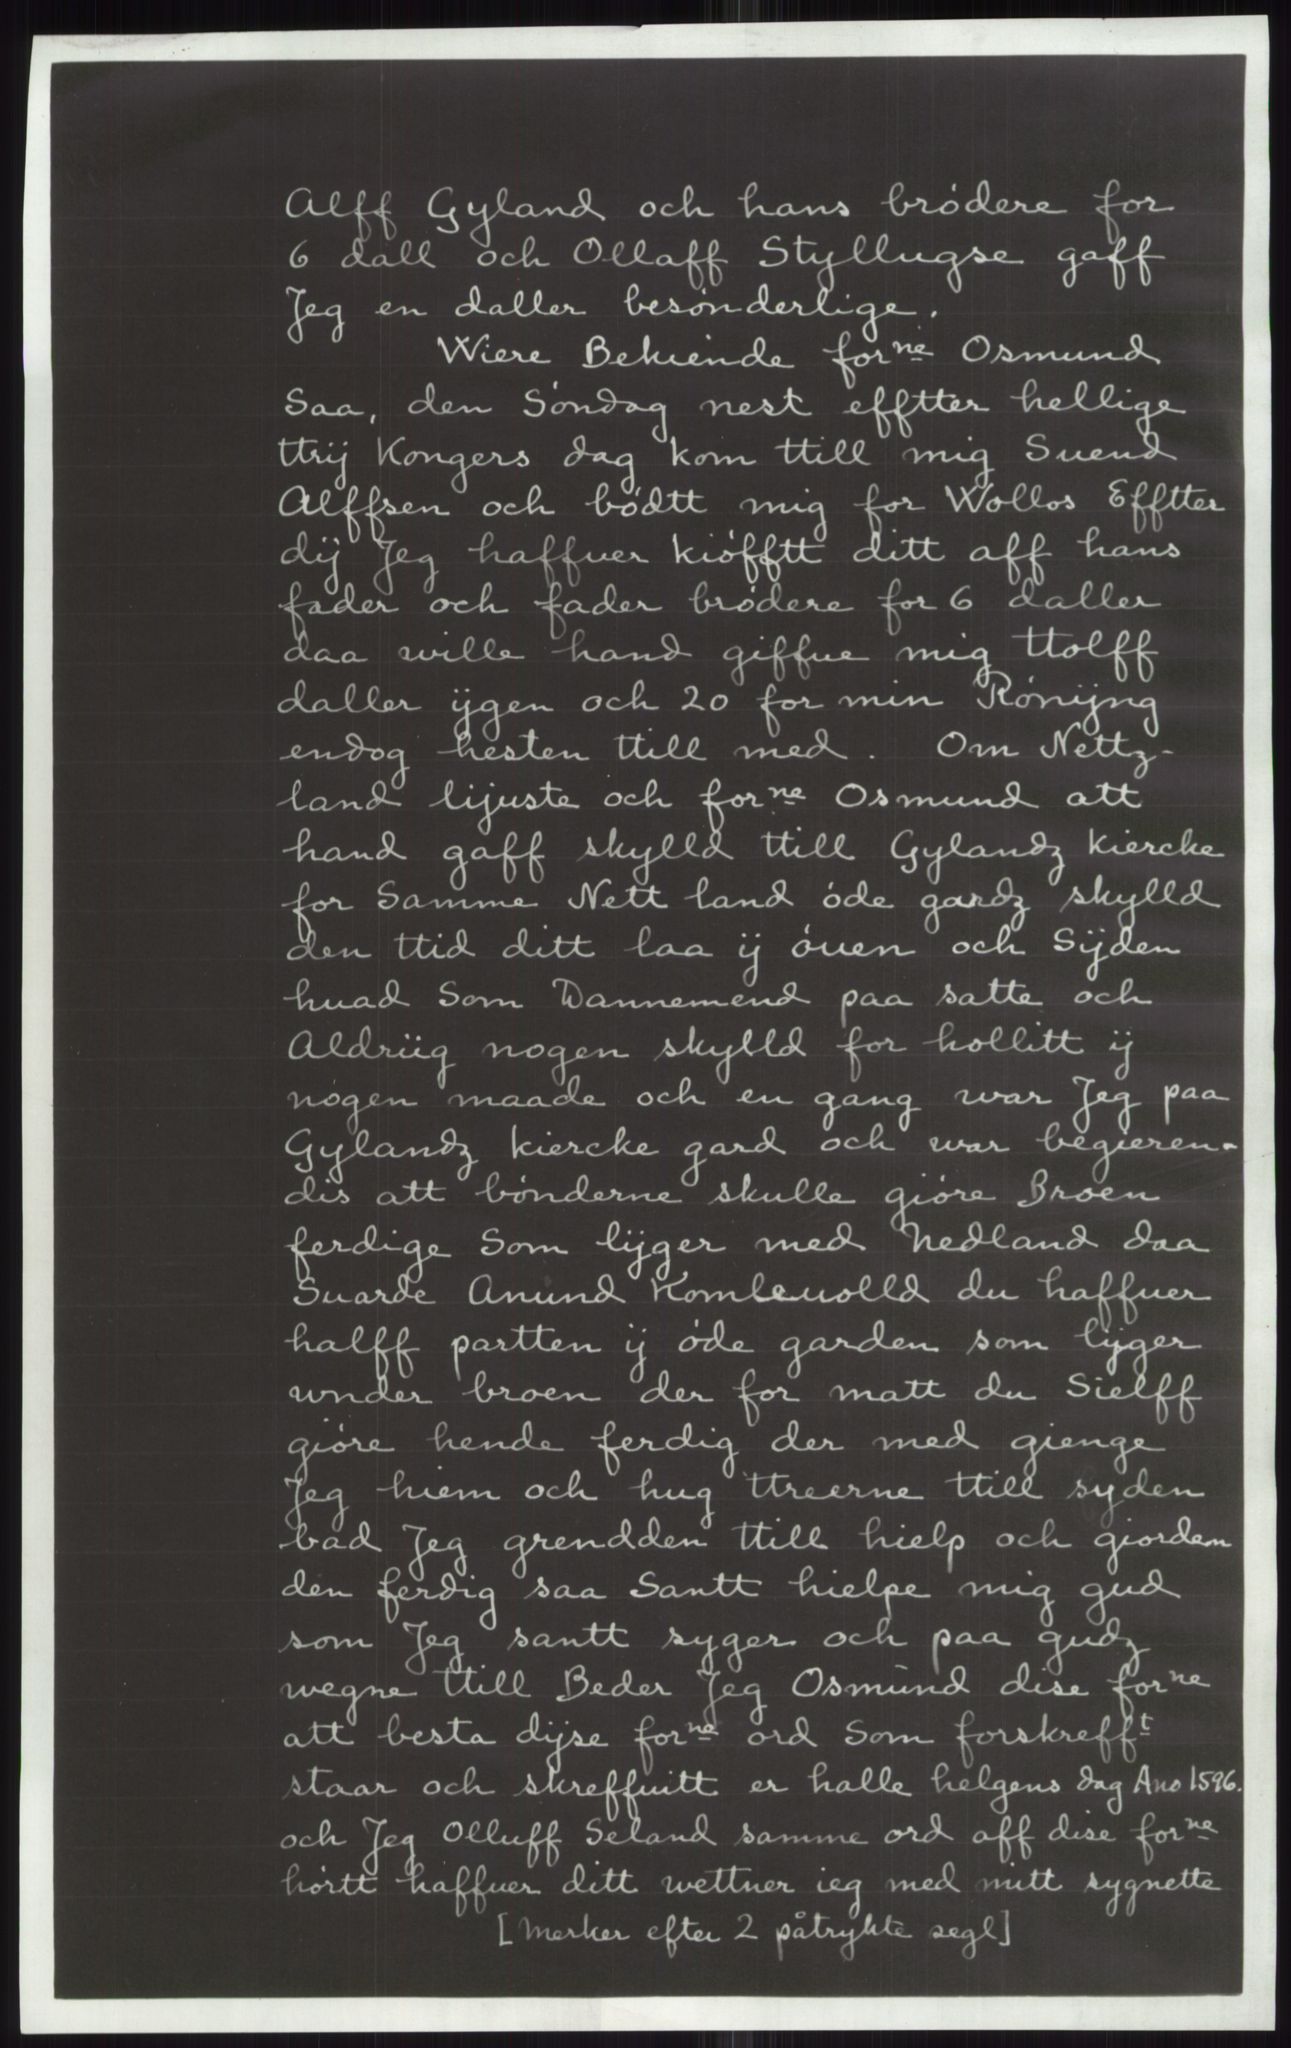 Alff Gyland och hans bródere for
6 dall och Ollaff Styllugse gaff
Jeg en daller besónderlige.
Wiere Bekiende forne Osmund
Saa, den Sóndag nest efftter hellige
ttrij Kongers dag kom ttill mig Suend
Alffsen och bódtt mig for Wollos Efftter
dij Jeg haffuer kiófftt ditt aff hans
fader och fader bródere for 6 daller
daa wille hand giffue mig ttolff
daller ijgen och 20 for min Rónijng
endog hesten ttill med. Om Nettz-
land lijuste och forne Osmund att
hand gaff skylld ttill Gylandz kiercke
for Samme Nett land óde gardz skylld
den ttid ditt laa ij óuen och Sijden
huad Som Dannemend paa satte och
Aldriig nogen skylld for hollitt ij
nogen maade och en gang war Jeg paa
Gylandz kiercke gard och war begieren-
dis att bónderne skulle gióre Broen
ferdige Som lijger med Nedland daa
Suarde Anund Komleuolld du haffuer
halff partten ij óde garden som lijger
wnder broen der for matt du Sielff
gióre hende ferdig der med gienge
Jeg hiem och hug ttreerne ttill syden
bad Jeg grendden ttill hielp och giordem
den ferdig saa Santt hielpe mig gud
som Jeg santt syger och paa gudz
wegne ttill Beder Jeg Osmund dise forne
att besta dijse forne ord Som forskrefft
staar och skreffuitt er halle helgens dag Ano 1596.
och Jeg Olluff Seland samme ord aff dise forne
hórtt haffuer ditt wettner ieg med mitt sygnette
[merker efter 2 påtrykte segl]